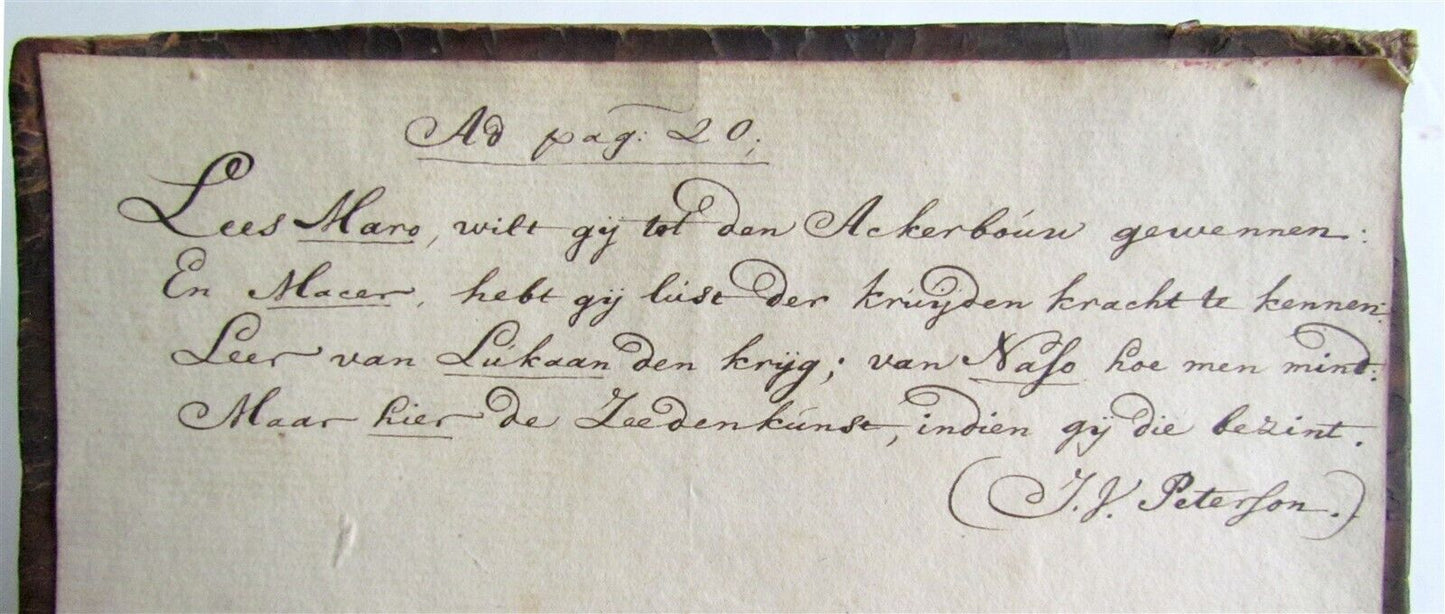 Ad pag: 20;
Lees Maro, wilt gij tot den Ackerbóúw gewennen:
En Macer, hebt gij lúst der krúijden kracht te kennen:
Leer van Lúkaan den krijg; van Naso hoe men mind:
Maar hier de Zeedenkúnst, indien gij die bezint.
(J. V. Peterson.)